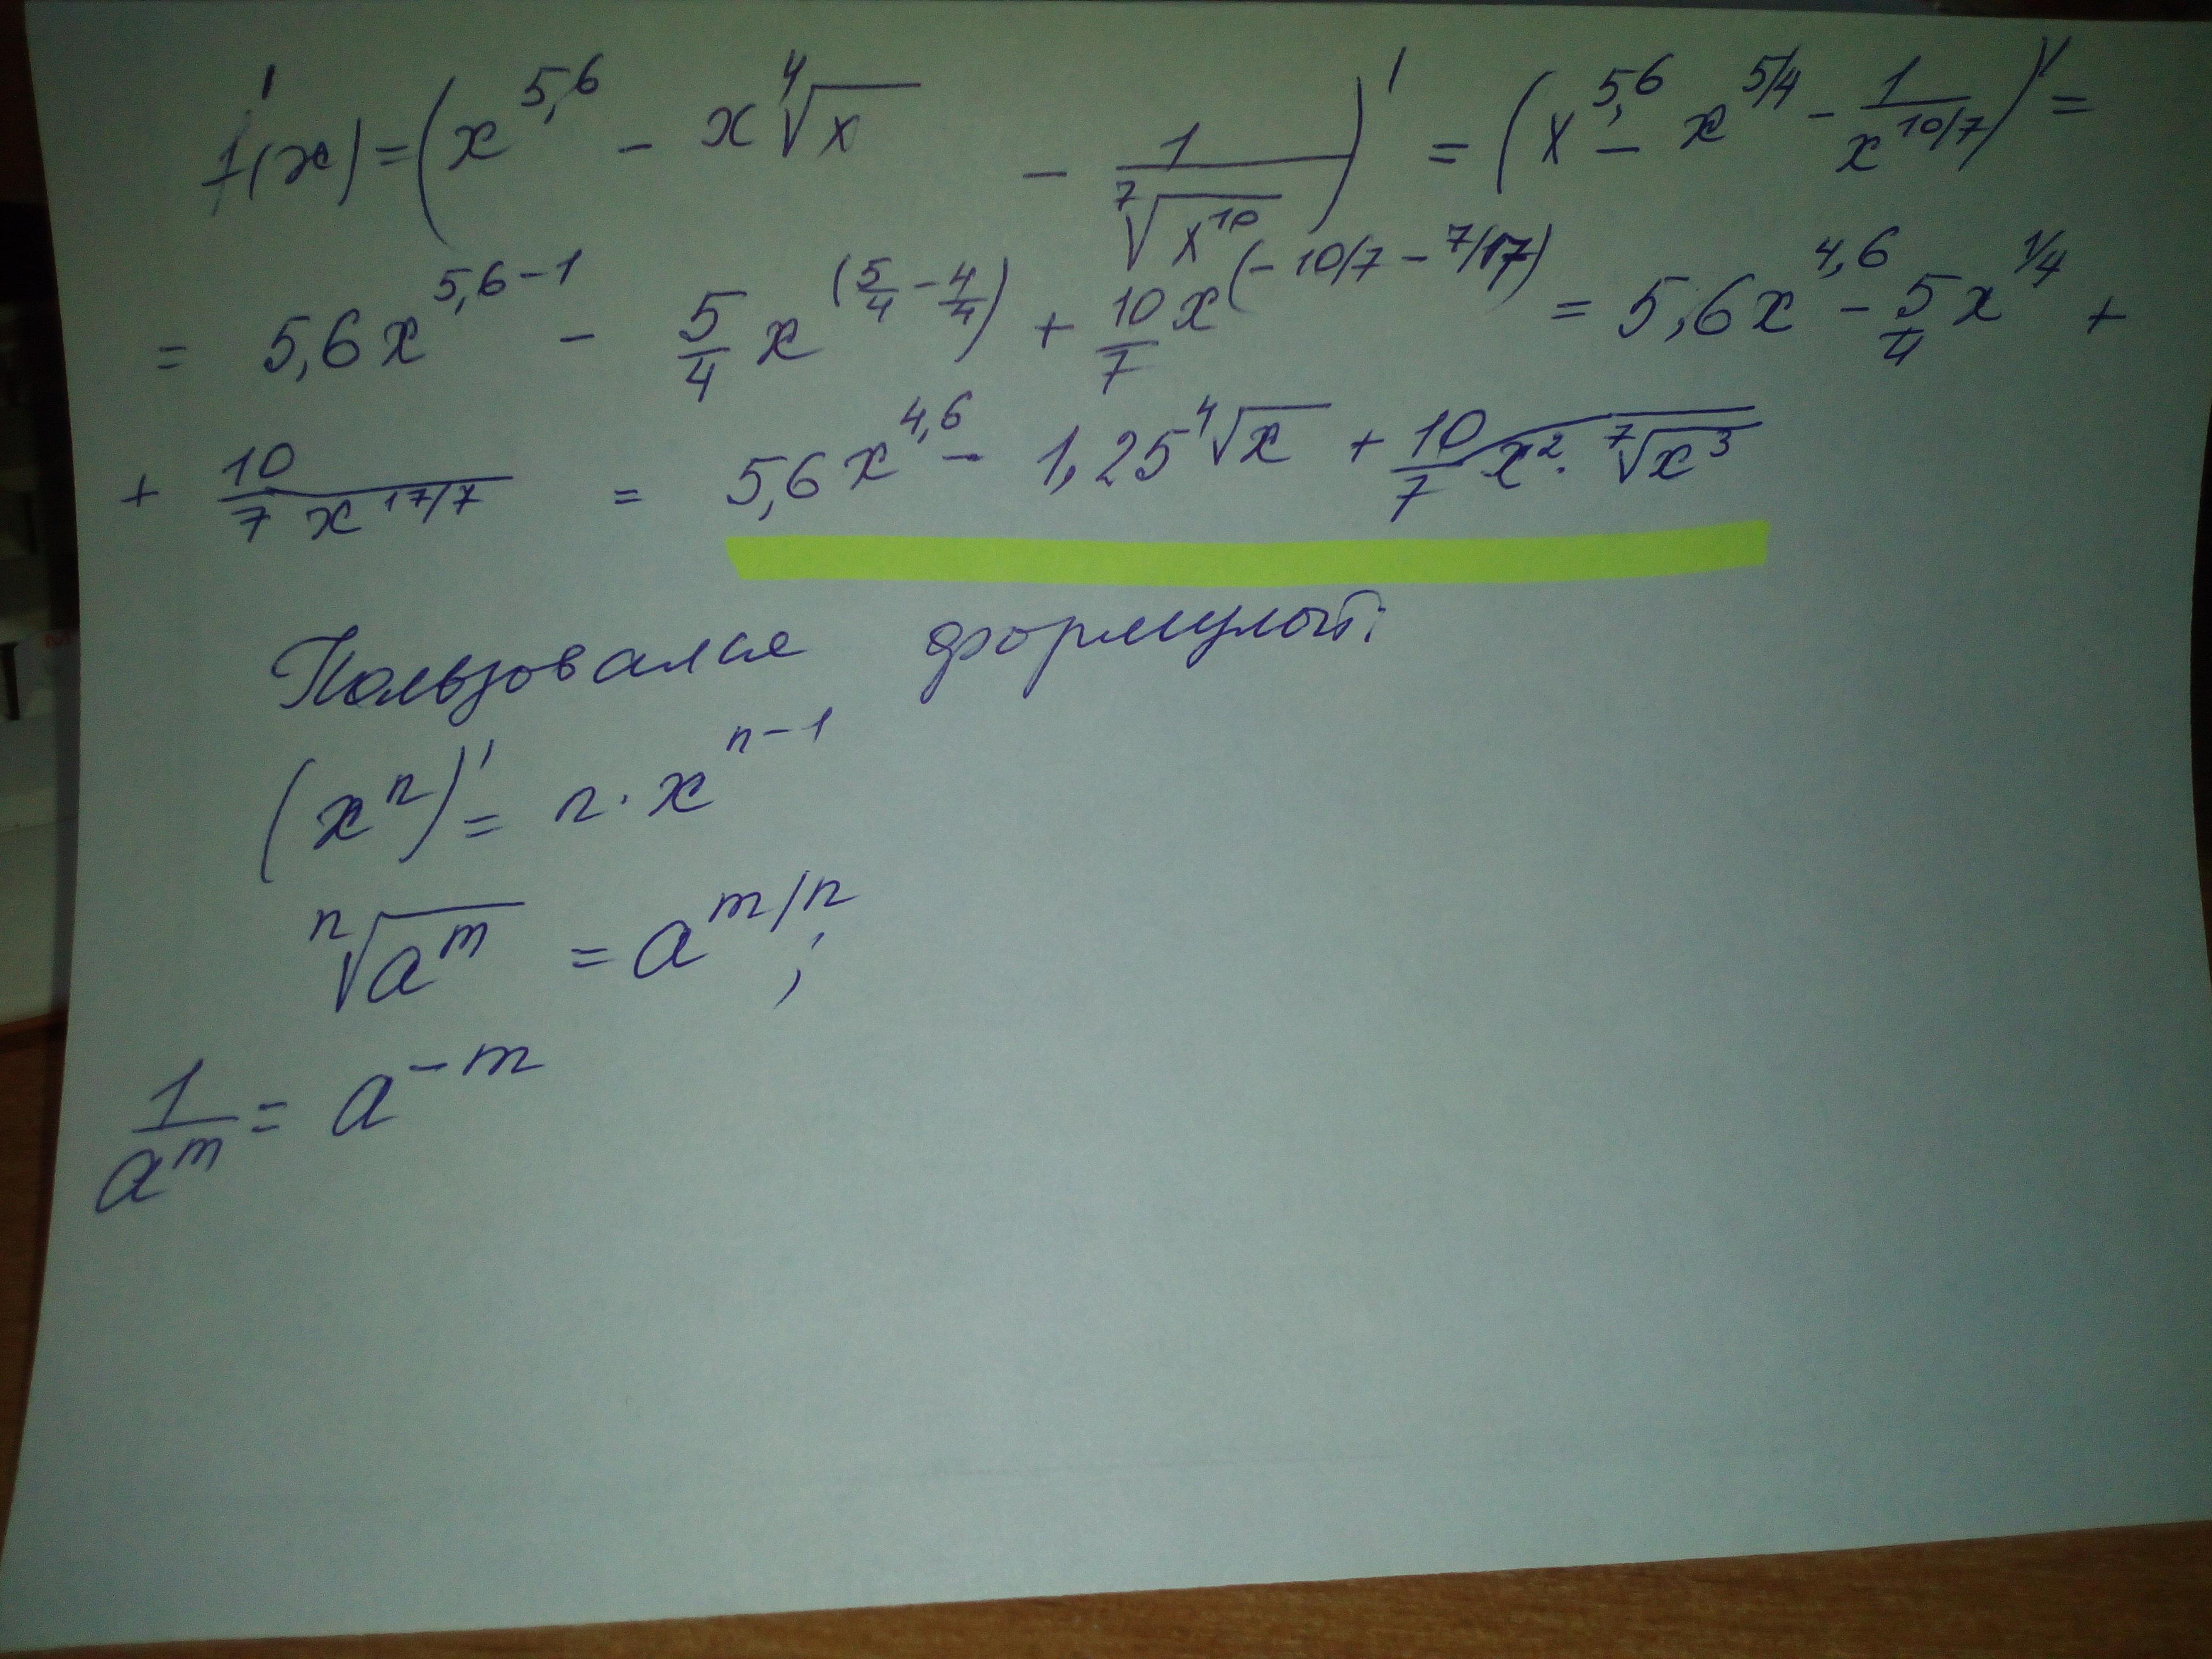 f'(x) = (x^5,6 − x ⁴√x − 1/⁷√x^10)' = (x^5,6 − x^5/4 − 1/x^10/7)' =
= 5,6x^5,6−1 − 5/4 x^(5/4 − 4/4) + 10/7 x^(−10/7 − 7/17) = 5,6x^4,6 − 5/4 x^1/4 +
+ 10/7x^17/7 = 5,6x^4,6 − 1,25 ⁴√x + 10/7x²·⁷√x³
Пользовался формулой:
(x^n)' = n · x^n−1
ⁿ√a^m = a^m/n ;
1/a^m = a^−m